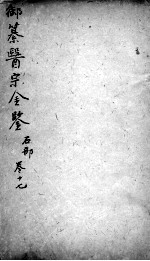 御纂醫宗金鑒
石部 卷十九